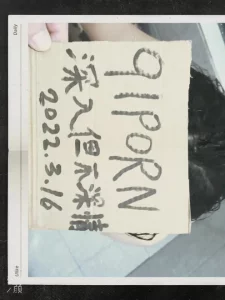 91PORN
深入但不深情
2022.3.16